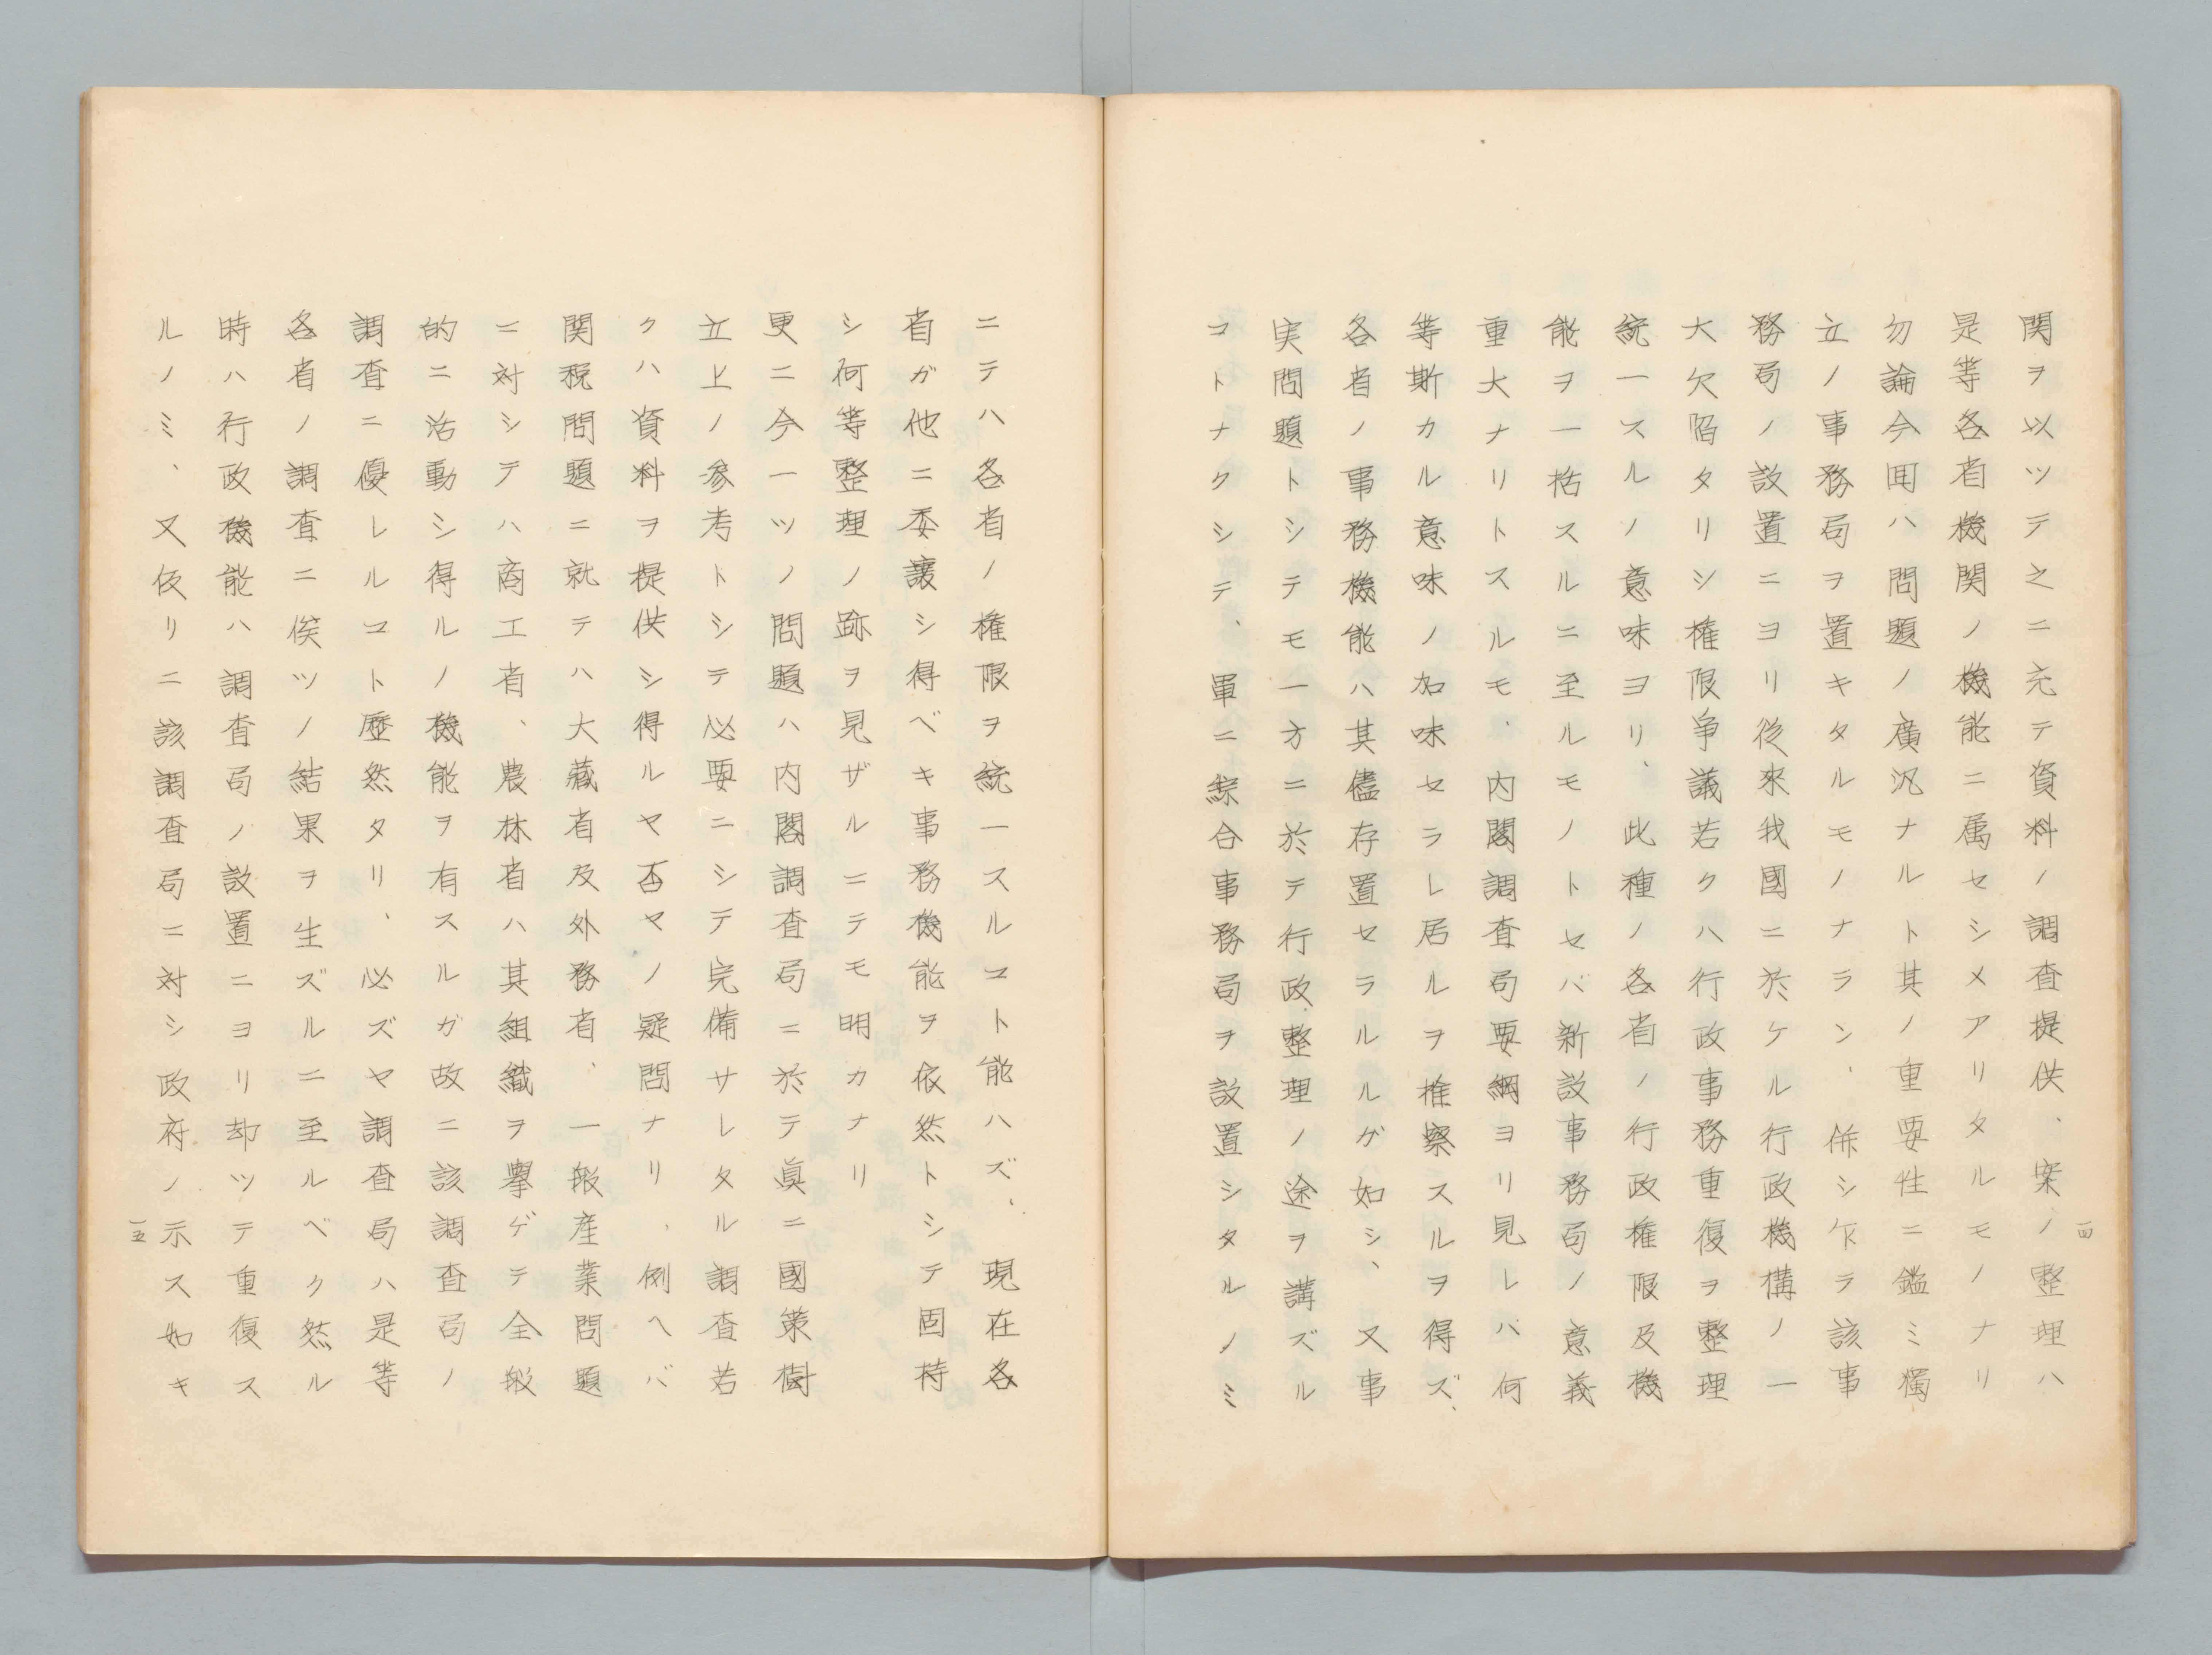 一四
関ヲ以ツテ之ニ充テ資料ノ調査提供、案ノ整理ハ
是等各省機関ノ機能ニ属セシメアリタルモノナリ
勿論今囬ハ問題ノ廣汎ナルト其ノ重要性ニ鑑ミ獨
立ノ事務局ヲ置キタルモノナラン、併シ乍ラ該事
務局ノ設置ニヨリ從來我國ニ於ケル行政機構ノ一
大欠陥タリシ権限争議若クハ行政事務重復ヲ整理
統一スルノ意味ヨリ、此種ノ各省ノ行政権限及機
能ヲ一括スルニ至ルモノトセバ新設事務局ノ意義
重大ナリトスルモ、内閣調査局要綱ヨリ見レバ何
等斯カル意味ノ加味セラレ居ルヲ推察スルヲ得ズ、
各省ノ事務機能ハ其儘存置セラルルガ如シ、又事
実問題トシテモ一方ニ於テ行政整理ノ途ヲ講ズル
コトナクシテ、單ニ綜合事務局ヲ設置シタルノミ
ニテハ各省ノ権限ヲ統一スルコト能ハズ、現在各
省ガ他ニ委譲シ得ベキ事務機能ヲ依然トシテ固持
シ何等整理ノ跡ヲ見ザルニテモ明カナリ
更ニ今一ツノ問題ハ内閣調査局ニ於テ眞ニ國策樹
立上ノ参考トシテ必要ニシテ完備サレタル調査若
クハ資料ヲ提供シ得ルヤ否ヤノ疑問ナリ、例ヘバ
関税問題ニ就テハ大藏省及外務省、一般産業問題
ニ対シテハ商工省、農林省ハ其組織ヲ擧ゲテ全般
的ニ活動シ得ルノ機能ヲ有スルガ故ニ該調査局ノ
調査ニ優レルコト歴然タリ、必ズヤ調査局ハ是等
各省ノ調査ニ俟ツノ結果ヲ生ズルニ至ルベク然ル
時ハ行政機能ハ調査局ノ設置ニヨリ却ツテ重復ス
ルノミ、又仮リニ該調査局ニ対シ政府ノ示ス如キ
一五